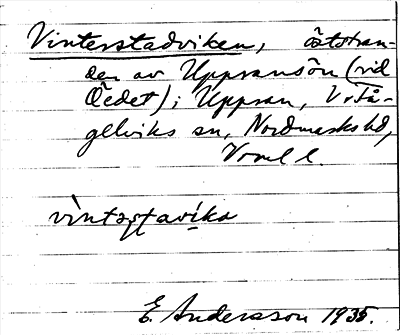 Vinterstadviken, öststran-
den av Uppransön (vid
Öedet); Uppran, V. Få-
gelviks sn, Nordmarks hd,
Vrml l.
vintəstavika
E. Andersson 1935.